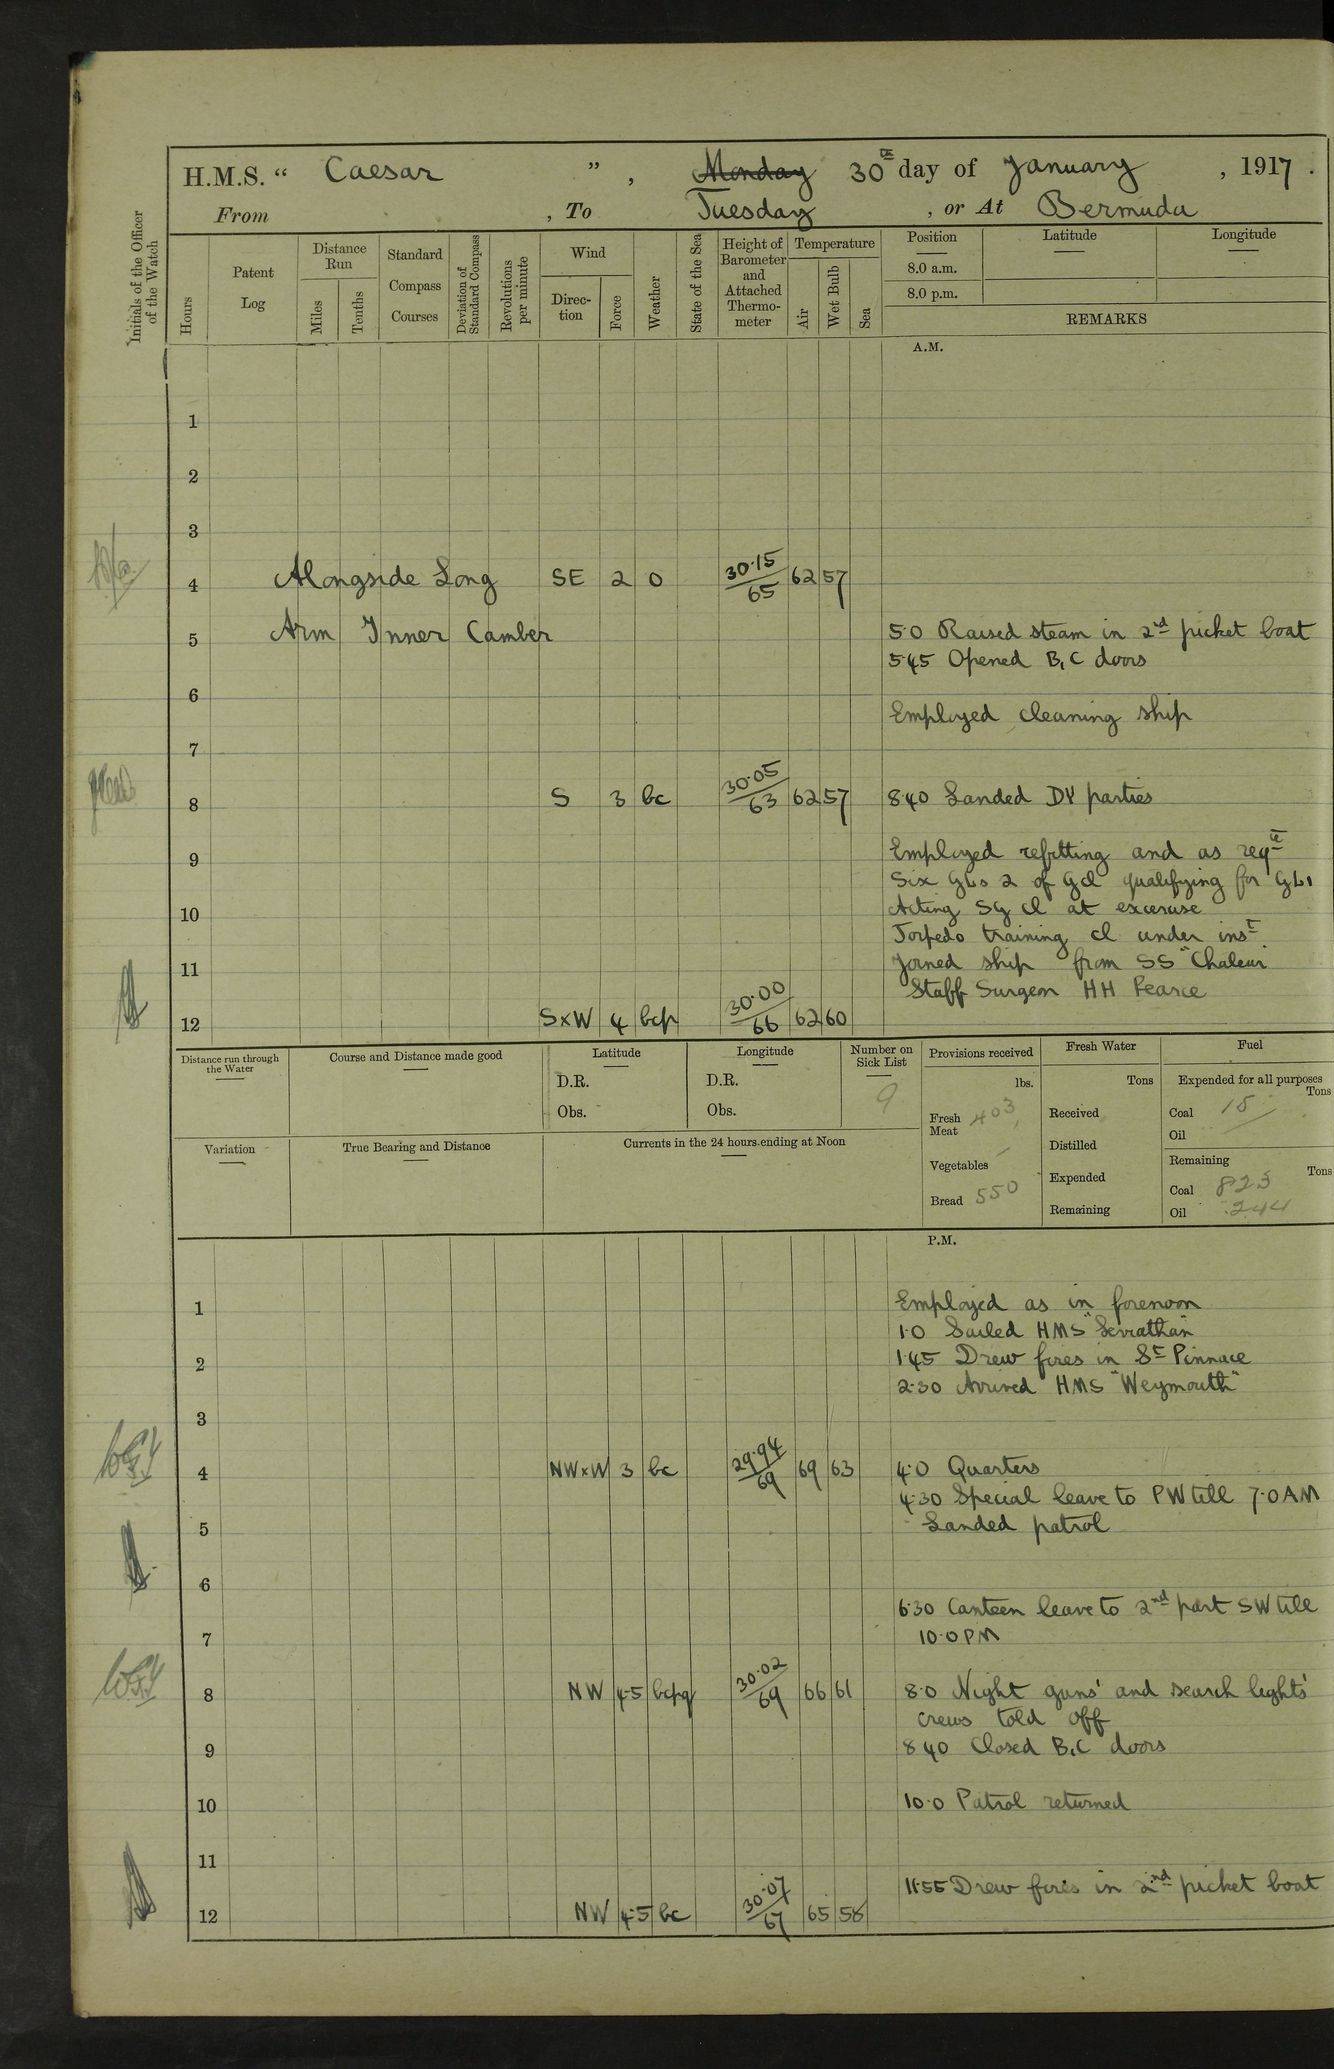 H.M.S. “ Caesar ” , Monday 30th day of January , 1917 .
From , To Tuesday , or At Bermuda
Initials of the Officer of the Watch
Hours
Patent Log
Distance Run
Miles
Tenths
Standard Compass Courses
Deviation of Standard Compass
Revolutions per minute
Wind
Direc-tion
Force
Weather
State of the Sea
Height of Barometer and Attached Thermo-meter
Temperature
Air
Wet Bulb
Sea
Position
8.0 a.m.
8.0 p.m.
Latitude
Longitude
REMARKS
A.M.
1
2
3
4 Alongside Long SE 2 o 30·15/65 62 57
5 Arm Inner Camber 5·0 Raised steam in 2nd picket boat
5·45 Opened B,C doors
6
Employed cleaning ship
7
8 S 3 bc 30·05/63 62 57 8·40 Landed DY parties
9 Employed refitting and as reqte
Six GLs 2 of Gcl qualifying for GL1
10 Acting SG cl at exercise
Torpedo training cl under inst
11 Joined ship from SS "Chaleur"
Staff Surgeon HH Pearce
12 SxW 4 bcp 30·00/66 62 60
Distance run through the Water
Course and Distance made good
Latitude
D.R.
Obs.
Longitude
D.R.
Obs.
Number on Sick List
9
Provisions received
lbs.
Fresh Meat 403
Vegetables
Bread 550
Fresh Water
Tons
Received
Distilled
Expended
Remaining
Fuel
Expended for all purposes
Tons
Coal 15
Oil
Remaining
Tons
Coal 823
Oil 244
Variation
True Bearing and Distance
Currents in the 24 hours ending at Noon
P.M.
1 Employed as in forenoon
1·0 Sailed HMS "Leviathan"
2 1·45 Drew fires in St Pinnace
2·30 Arrived HMS "Weymouth"
3
4 NWxW 3 bc 29·94/69 69 63 4·0 Quarters
4·30 Special leave to PW till 7·0 AM
5 Landed patrol
6
6·30 Canteen leave to 2nd part SW till
7 10·0 PM
8 NW 4·5 bcpq 30·02/69 66 61 8·0 Night guns' and search lights'
crews told off
9 8 40 Closed B,C doors
10 10·0 Patrol returned
11
11·55 Drew fires in 2nd picket boat
12 NW 4·5 bc 30·07/67 65 58